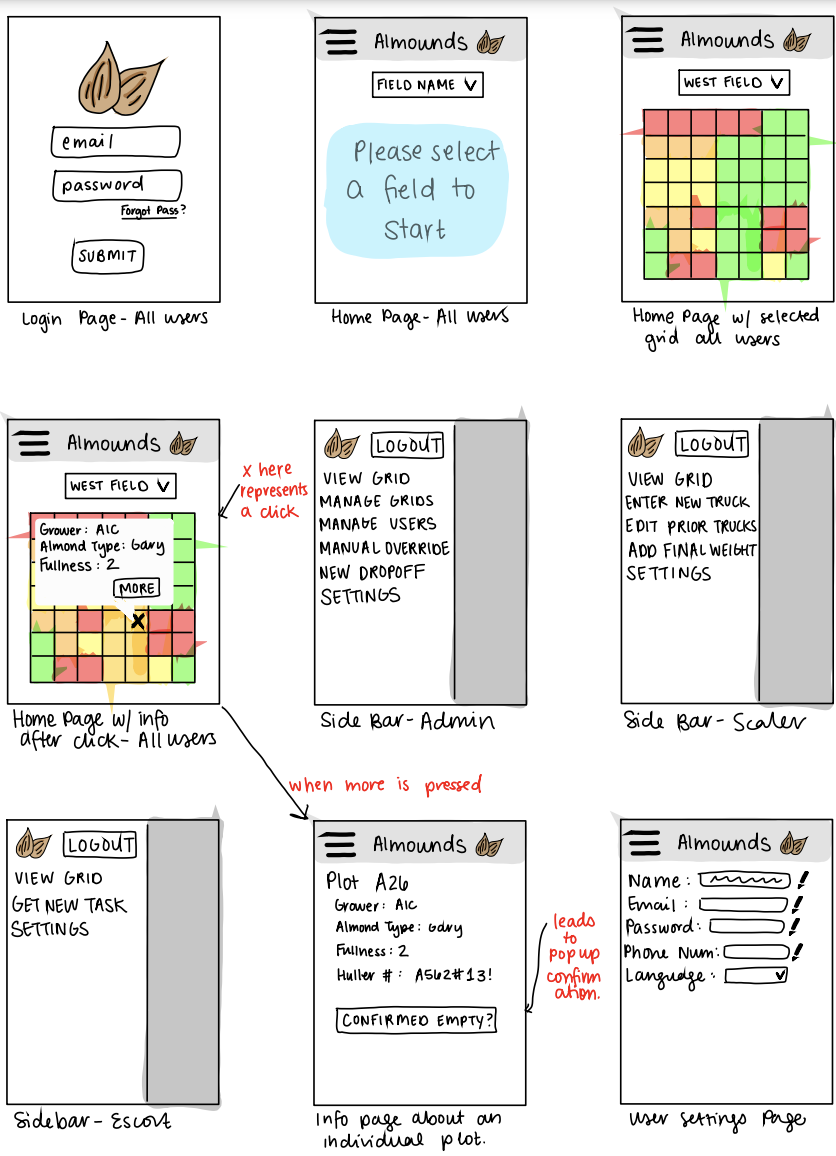 email
password
Forgot Pass?
SUBMIT
Login Page - All users
Almounds
FIELD NAME
Please select
a field to
start
Home Page - All users
Almounds
WEST FIELD
Home Page w/ selected
grid all users
Almounds
WEST FIELD
Grower: AIC
Almond Type: Gary
Fullness: 2
MORE
X
x here
represents
a click
Home Page w/ info
after click - All users
LOGOUT
VIEW GRID
MANAGE GRIDS
MANAGE USERS
MANUAL OVERRIDE
NEW DROPOFF
SETTINGS
Side Bar - Admin
LOGOUT
VIEW GRID
ENTER NEW TRUCK
EDIT PRIOR TRUCKS
ADD FINAL WEIGHT
SETTINGS
Side Bar - Scaler
when more is pressed
LOGOUT
VIEW GRID
GET NEW TASK
SETTINGS
Sidebar - Escort
Almounds
Plot A26
Grower: AIC
Almond Type: Gary
Fullness: 2
Huller #: A562#13!
CONFIRMED EMPTY?
leads
to
pop up
confirm
ation.
Info page about an
individual plot.
Almounds
Name:
Email:
Password:
Phone Num:
Language:
User Settings Page